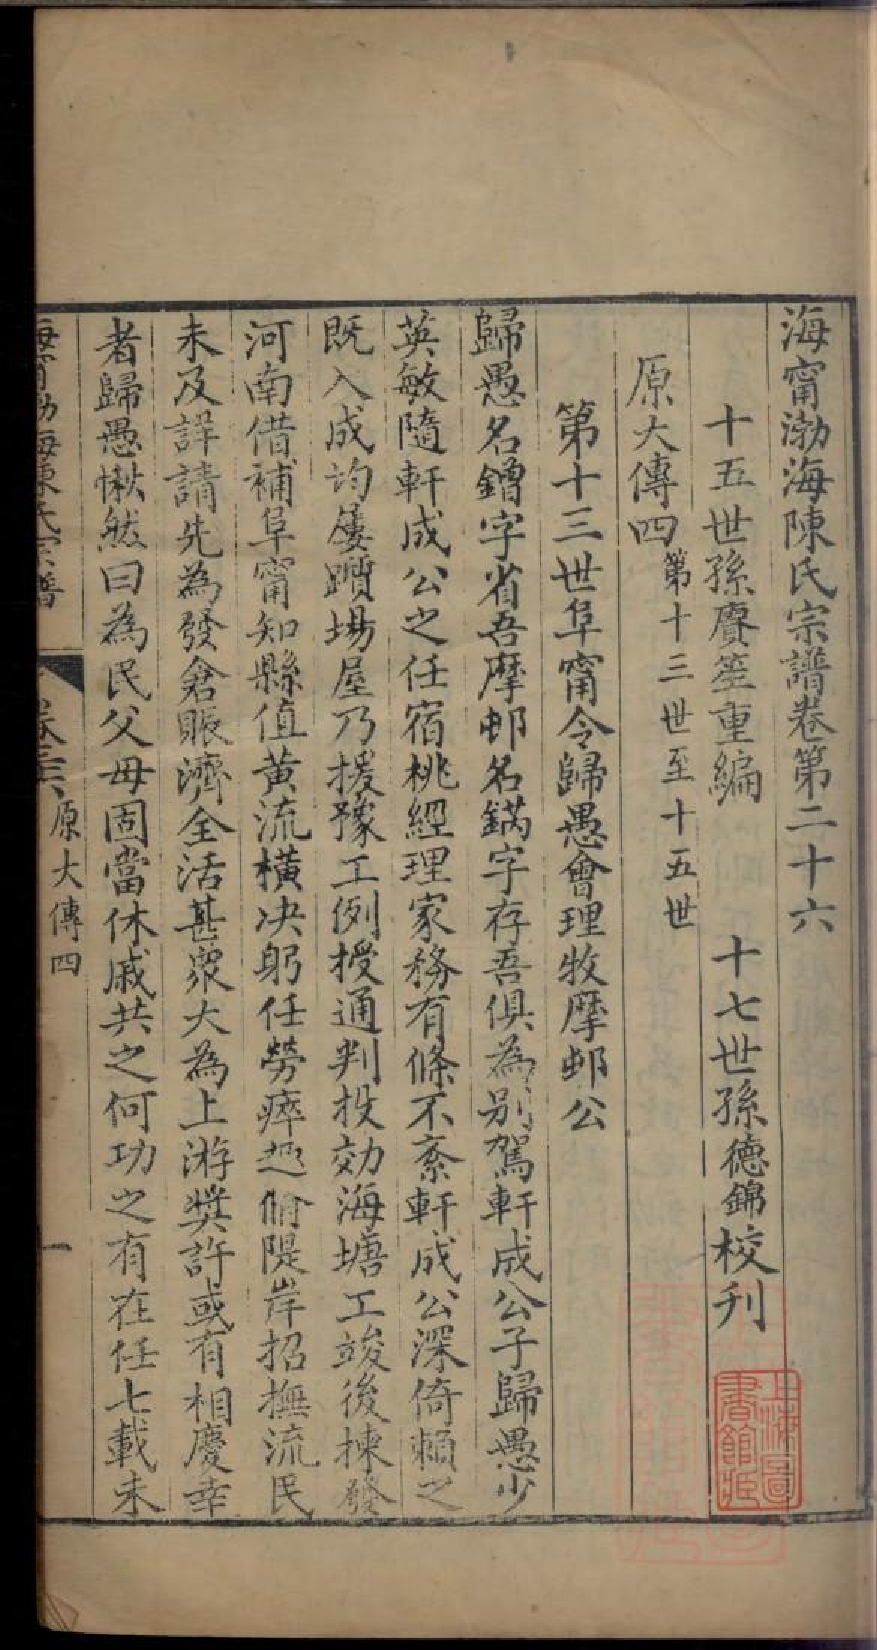 海甯渤海陳氏宗譜卷第二十六
十五世孫賡笙重編　十七世孫德錦校刋
原大傳四第十三世至十五世
第十三世阜甯令歸愚會理牧摩邨公
歸愚名鐕字省吾摩邨名鎷字存吾俱為别駕軒成公子歸愚少
英敏隨軒成公之任宿桃經理家務有條不紊軒成公深倚賴之
既入成均屢躓場屋乃援豫工例授通判投効海塘工竣後揀發
河南借補阜甯知縣值黄流橫决躬任勞瘁趣脩隄岸招撫流民
未及詳請先為發倉賑濟全活甚眾大為上游奬許或有相慶幸
者歸愚愀然曰為民父母固當休戚共之何功之有在任七載未
海甯渤海陳氏宗譜
卷二六　原大傳四　一
上海圖書館藏